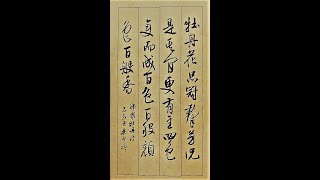 牡丹花品冠群芳况
是其间更有王四色
变而成百色百般颜
色百般香